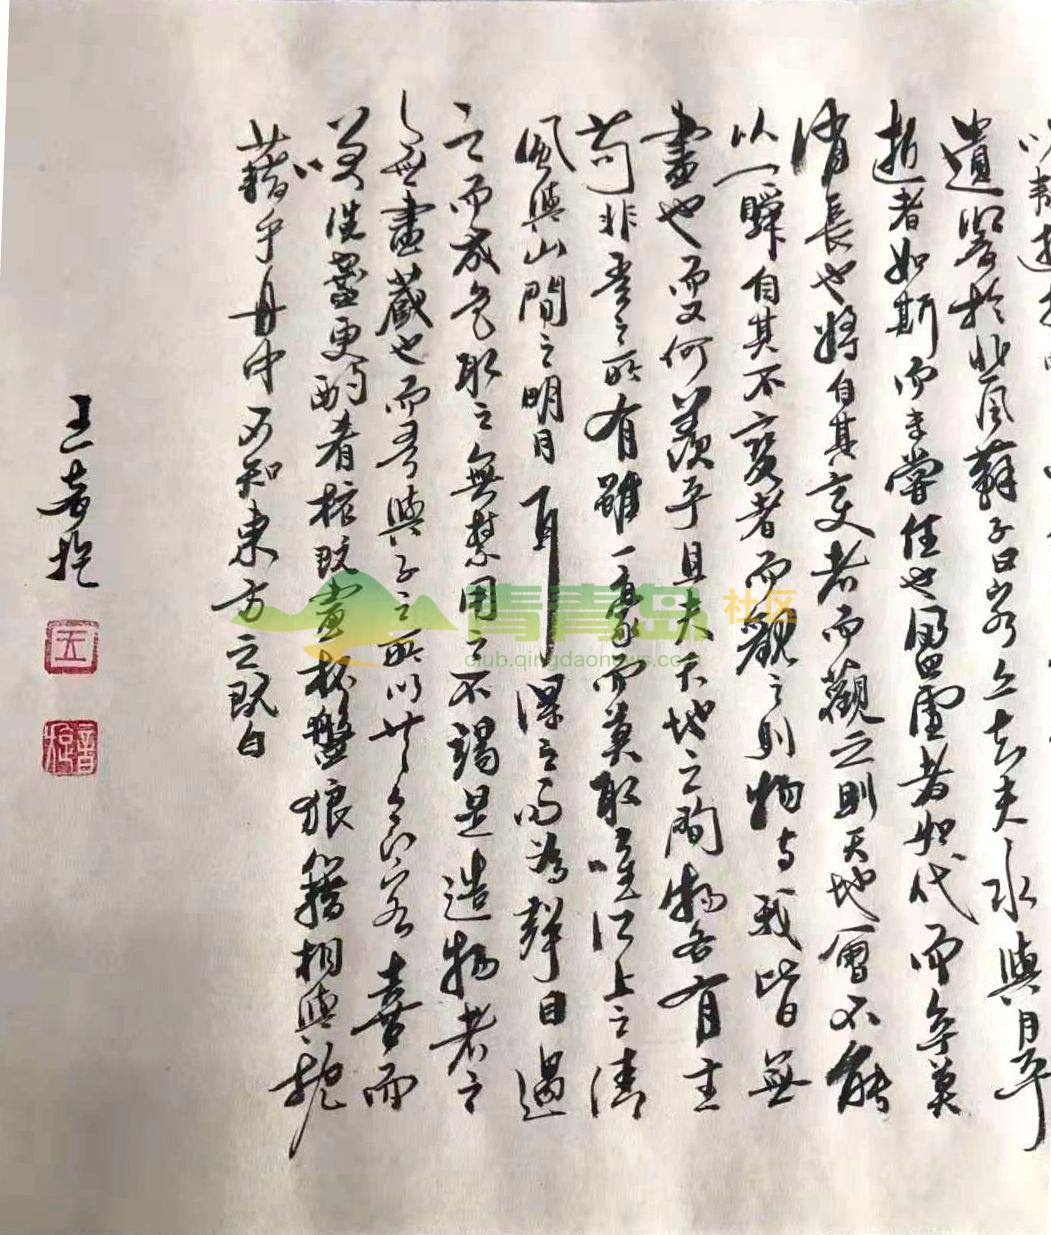 以遨遊
遺響於悲風蘇子曰客亦知夫水與月乎
逝者如斯而未嘗往也盈虛者如代而卒莫
消長也將自其變者而觀之則天地曾不能
以一瞬自其不變者而觀之則物与我皆無
盡也而又何羨乎且夫天地之間物各有主
苟非吾之所有雖一毫而莫取唯江上之清
風與山間之明月耳得之而為聲目遇
之而成色取之無禁用之不竭是造物者之
無盡藏也而吾與子之所以共食客喜而
笑洗盞更酌肴核既盡杯盤狼籍相與枕
藉乎舟中不知東方之既白
王
王
青青岛 社区
club.qingdaonews.com